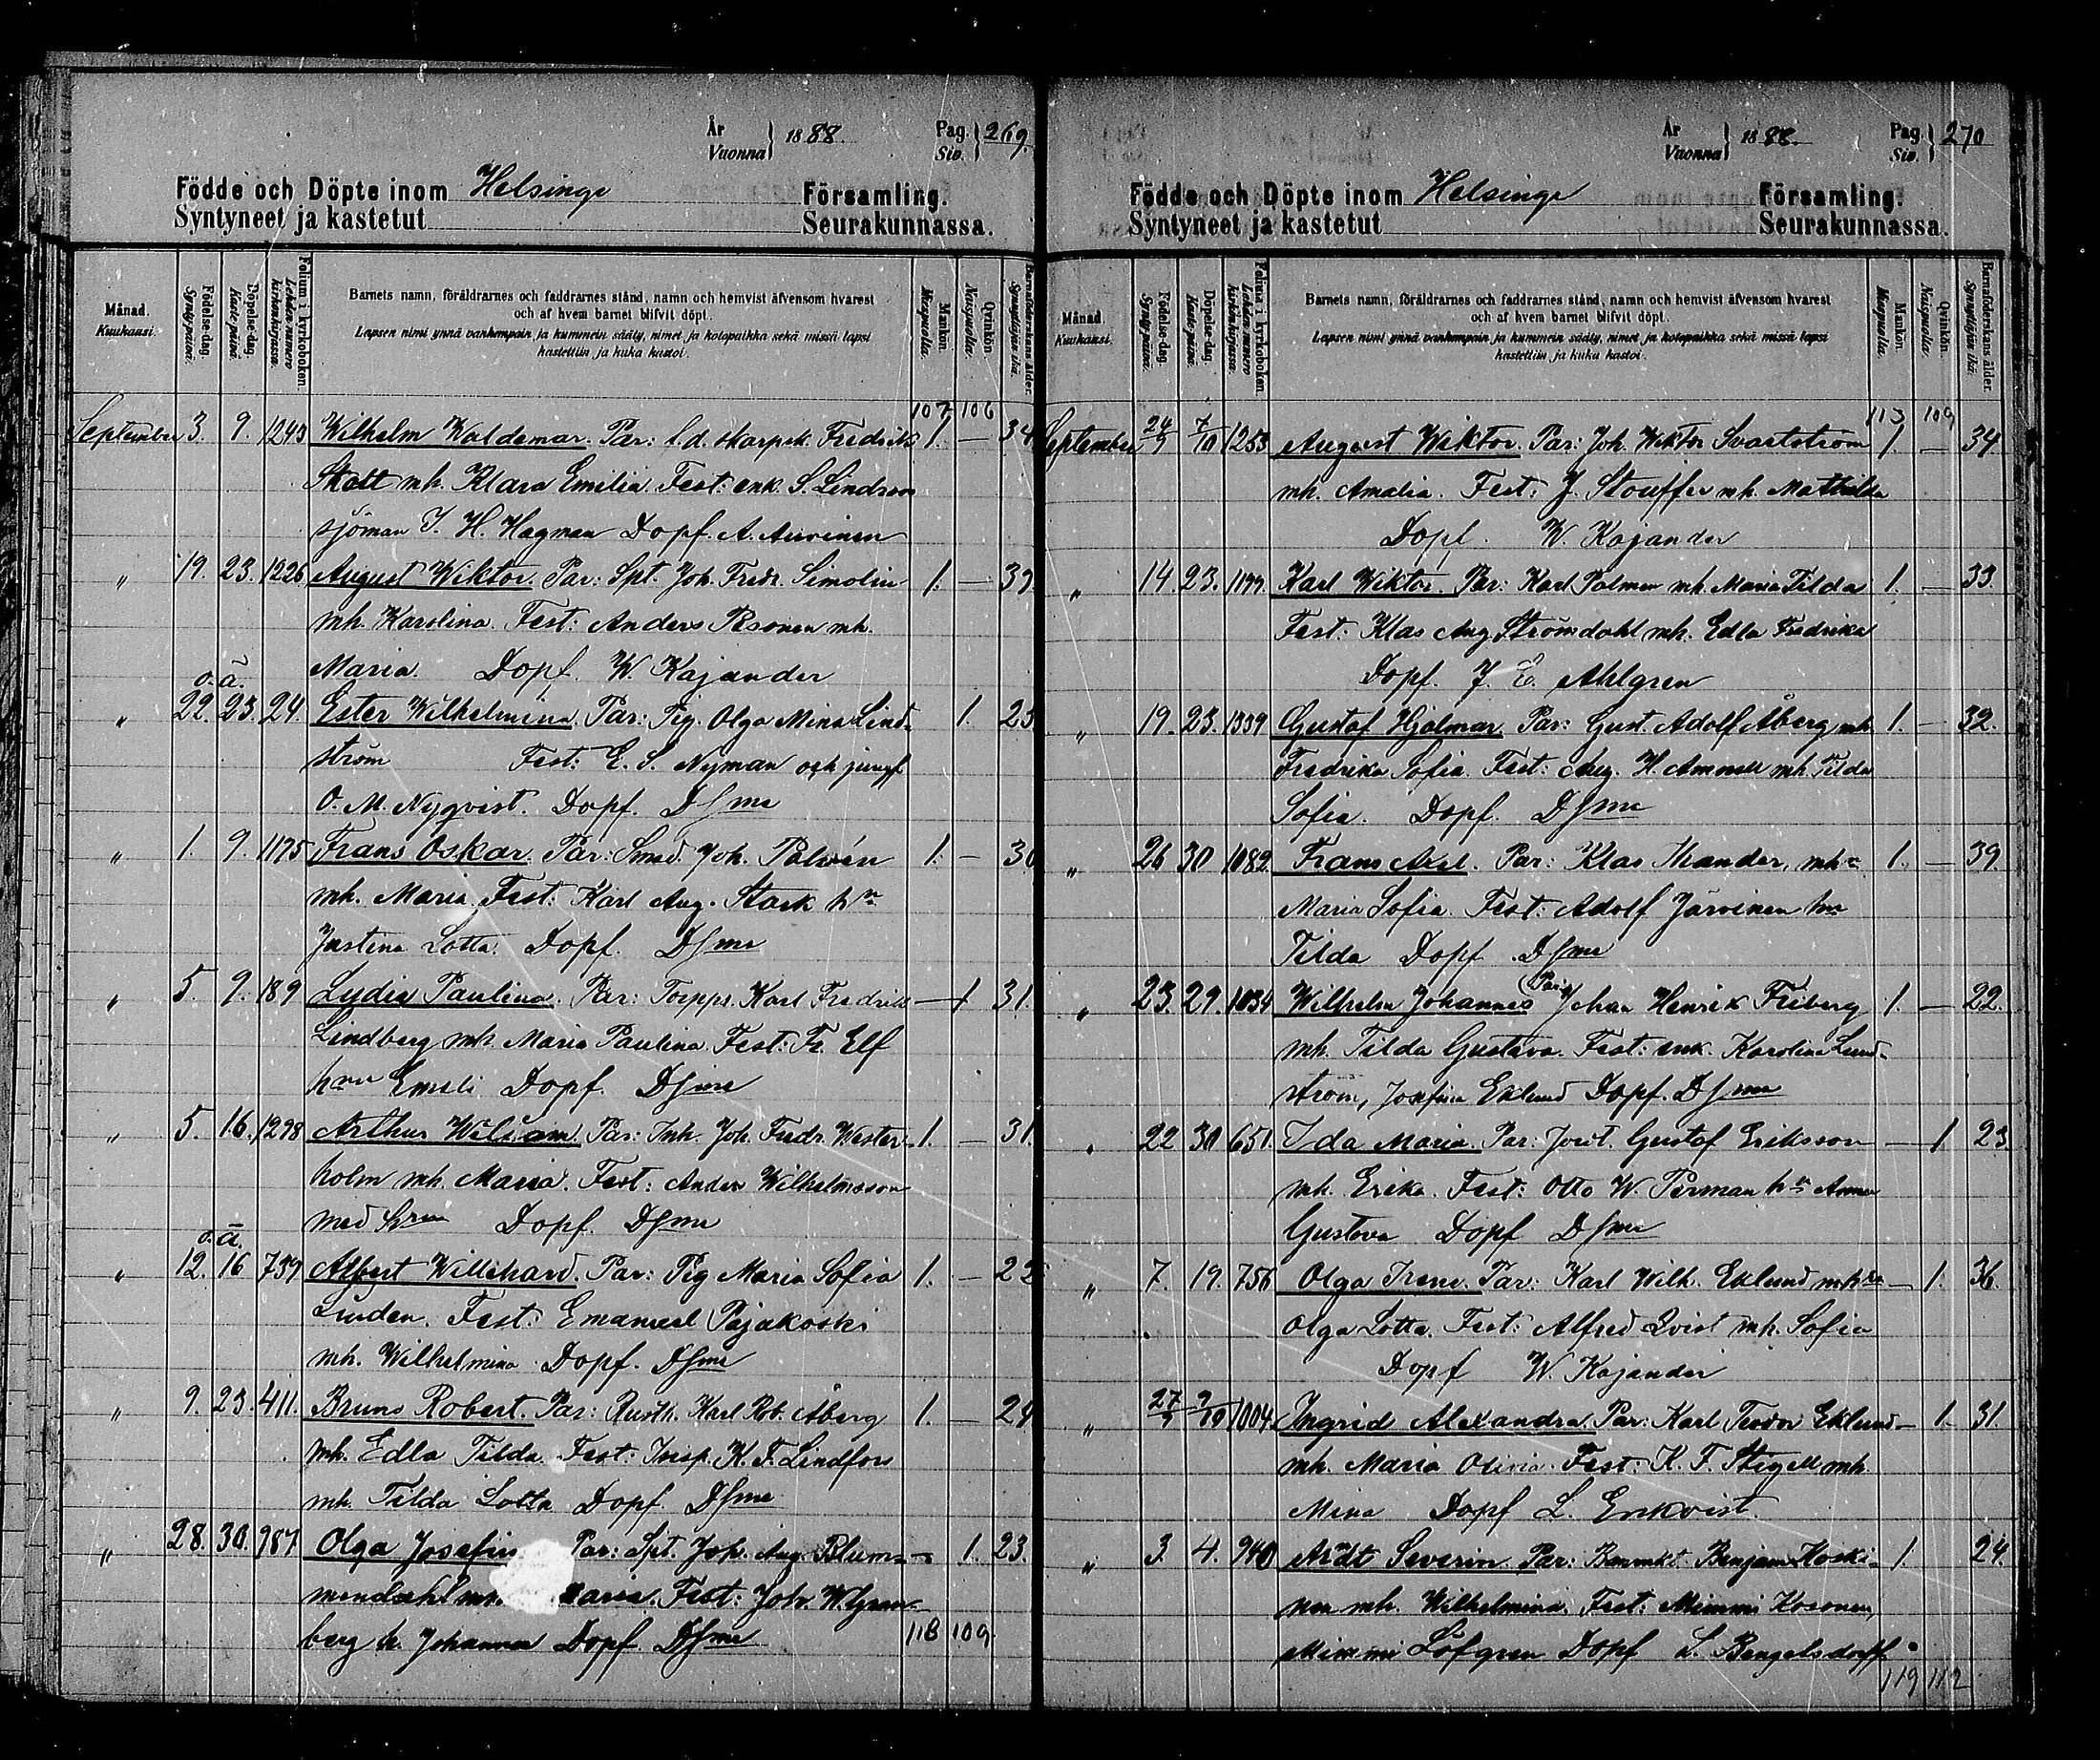 År
Vuonna } 1888.
Pag.
Siv. } 269.
Födde och Döpte inom Helsinge Församling.
Syntyneet ja kastetut Seurakunnassa.
Månad.
Kuukausi.
Födelse-dag.
Synty-päivä.
Döpelse-dag.
Kaste-päivä.
Folium i kyrkoboken.
Lehden numero
kirkonkirjassa.
Barnets namn, föräldrarnes och faddrarnes stånd, namn och hemvist äfvensom hvarest
och af hvem barnet blifvit döpt.
Lapsen nimi ynnä vanhempain ja kummein sääty, nimet ja kotopaikka sekä missä lapsi
kastettiin ja kuka kastoi.
Mankön.
Miespuolia.
Qvinkön.
Naispuolia.
Barnaföderskans ålder.
Synnyttäjän ikä.
107 106
September 3. 9. 1243 Wilhelm Waldemar. Par: f.d. skarpsk. Fredrik 1. — 34
Skott mh. Klara Emilia Fest: enk. S. Lindroos
sjöman J. H. Hagman Dopf. A. Auvinen
" 19. 23. 1226 August Wiktor. Par: Spt. Joh. Fredr. Simolin 1. — 39
mh. Karolina. Fest: Anders Pesonen mh.
Maria. Dopf. W. Kajander
o.ä.
" 22. 23. 24. Ester Wilhelmina. Par: Pig. Olga Mina Lind- 1. 23
ström Fest: E. S. Nyman och jungf
O. M. Nyqvist. Dopf. DSme
" 1. 9. 1175 Frans Oskar. Par: Smed. Joh. Palmén 1. — 30
mh. Maria. Fest: Karl Aug. Stark hn
Justina Lotta. Dopf. DSme
" 5. 9. 189 Lydia Paulina. Par: Torppr. Karl Fredrik — 1 31.
Lindberg mh. Maria Paulina. Fest: Fr. Elf
hru Emeli Dopf. DSme
" 5. 16. 1298 Arthur Wiliam. Par: Inh. Joh. Fredr. Wester- 1. — 31.
holm mh. Maria. Fest: Anders Wilhelmsson
med hru Dopf. DSme
o.ä.
" 12. 16 739 Albert Willehard. Par: Pig Maria Sofia 1. — 22
Linden. Fest: Emanuel Pajakoski
mh. Wilhelmina. Dopf. DSme
" 9. 23. 411. Bruno Robert. Par: Rusth. Karl Rob. Åberg 1. — 24
mh. Edla Tilda. Fest: Insp. K. F. Lindfors
mh. Tilda Lotta Dopf. DSme
" 28. 30. 987. Olga Josefin Par: Spt. Joh. Aug. Blum- — 1. 23.
mendahl mh. Maria. Fest: Joh. W. Gran-
berg h. Johanna Dopf. DSme 118 109.
År
Vuonna } 1888.
Pag.
Siv. } 270
Födde och Döpte inom Helsinge Församling.
Syntyneet ja kastetut Seurakunnassa.
Månad.
Kuukausi.
Födelse-dag.
Synty-päivä.
Döpelse-dag.
Kaste-päivä.
Folium i kyrkoboken.
Lehden numero
kirkonkirjassa.
Barnets namn, föräldrarnes och faddrarnes stånd, namn och hemvist äfvensom hvarest
och af hvem barnet blifvit döpt.
Lapsen nimi ynnä vanhempain ja kummein sääty, nimet ja kotopaikka sekä missä lapsi
kastettiin ja kuka kastoi.
Mankön.
Miespuolia.
Qvinkön.
Naispuolia.
Barnaföderskans ålder.
Synnyttäjän ikä.
113 109
September 24/9 7/10 1253 August Wiktor. Par: Joh. Wiktor Svartström 1. — 34.
mh. Amalia. Fest: J. Stouffer mh. Mathilda
Dopf. W. Kajander
" 14. 23. 1199. Karl Wiktor. Par: Karl Palmen mh. Maria Tilda 1. — 33.
Fest: Klas Aug. Strömdahl mh. Edla Fredrika
Dopf. J. E. Ahlgren
" 19. 23. 1339 Gustaf Hjalmar. Par: Gust. Adolf Åberg mh. 1. — 32.
Fredrika Sofia. Fest: Aug. H. Ammell mh. Tilda
Sofia. Dopf. DSme
" 26 30 1082. Frans Axel. Par: Klas Thander, mh. 1. — 39.
Maria Sofia. Fest: Adolf Järvinen hn
Tilda Dopf. DSme
" 23. 29. 1034 Wilhelm Johannes (Par: Johan Henrik Friberg 1. — 22.
mh. Tilda Gustava. Fest: enk. Karolina Lund-
ström, Josefina Eklund Dopf. DSme
" 22 30 651. Ida Maria. Par: Gustaf Eriksson — 1 23.
mh. Erika. Fest: Otto W. Perman hn Anna
Gustava Dopf DSme
" 7. 19. 756 Olga Irene. Par: Karl Wilh. Eklund mh — 1. 36.
Olga Lotta. Fest: Alfred Qvist mh. Sofia
Dopf W. Kajander
" 27/9 2/10 1004. Ingrid Alexandra. Par: Karl Teodor Eklund — 1. 31.
mh. Maria Olivia. Fest: K. F. Stigell mh.
Mina Dopf L. Enkvist.
" 3. 4. 940 Arvid Severin. Par: Benjamin Koski- 1. 24.
nen mh. Wilhelmina. Fest: Mimmi Kosonen,
Mimmi Löfgren Dopf L. Bengelsdorff.
119 112